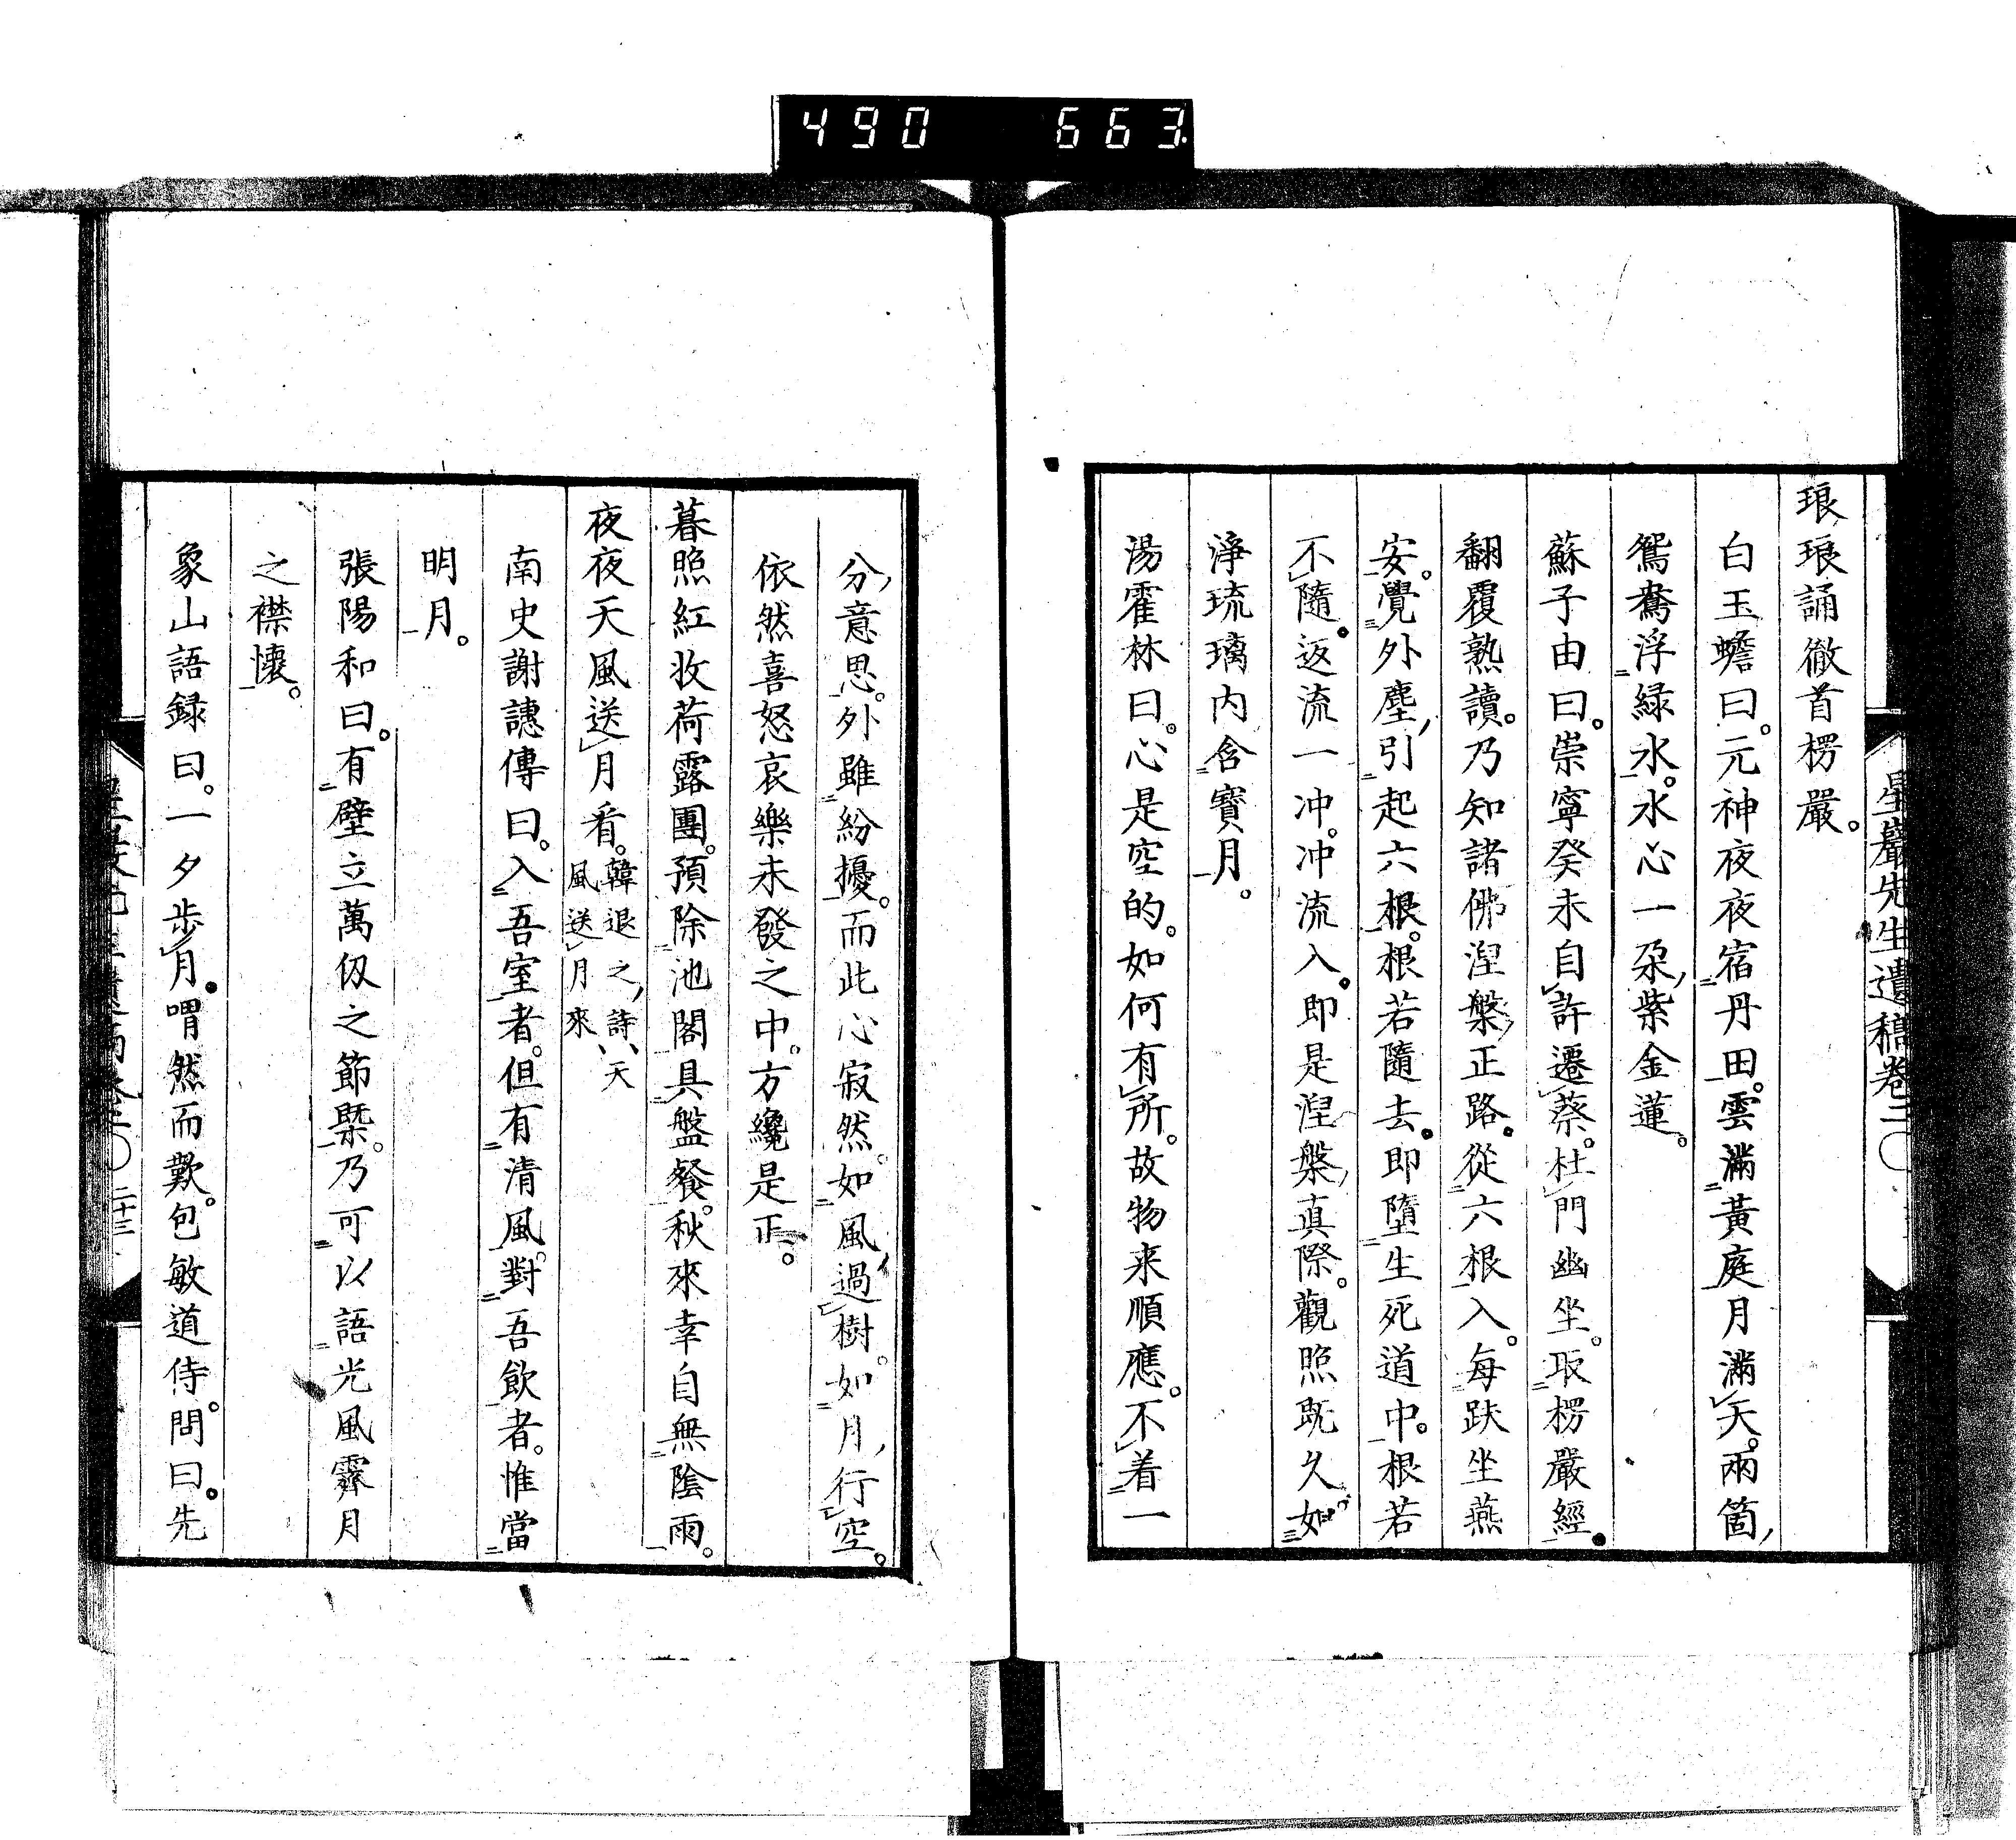 490 663
星巖先生遺稿卷二〇
琅琅誦徹首楞嚴。
白玉蟾曰。元神夜夜宿丹田。雲滿黃庭月滿天。兩箇
鴛鴦浮緑水。水心一朶紫金蓮。
蘇子由曰。崇寧癸未自許遷蔡。杜門幽坐。取楞嚴經。
翻覆熟讀。乃知諸佛涅槃正路。從六根入。每趺坐燕
安。覺外塵引起六根。根若隨去。即墮生死道中。根若
不隨。返流一冲。冲流入。即是涅槃真際。觀照既久。如
淨琉璃内含寶月。
湯霍林曰。心是空的。如何有所。故物来順應。不着一
分意思。外雖紛擾。而此心寂然。如風過樹。如月行空。
依然喜怒哀樂未發之中。方纔是正。
暮照紅收荷露團。預除池閣具盤餐。秋來幸自無陰雨。
夜夜天風送月看。韓退之詩、天
風送月來
南史謝譓傳曰。入吾室者。但有清風。對吾飲者。惟當
明月。
張陽和曰。有壁立萬仭之節槩。乃可以語光風霽月
之襟懐。
象山語録曰。一夕歩月。喟然而歎。包敏道侍。問曰。先
二十三